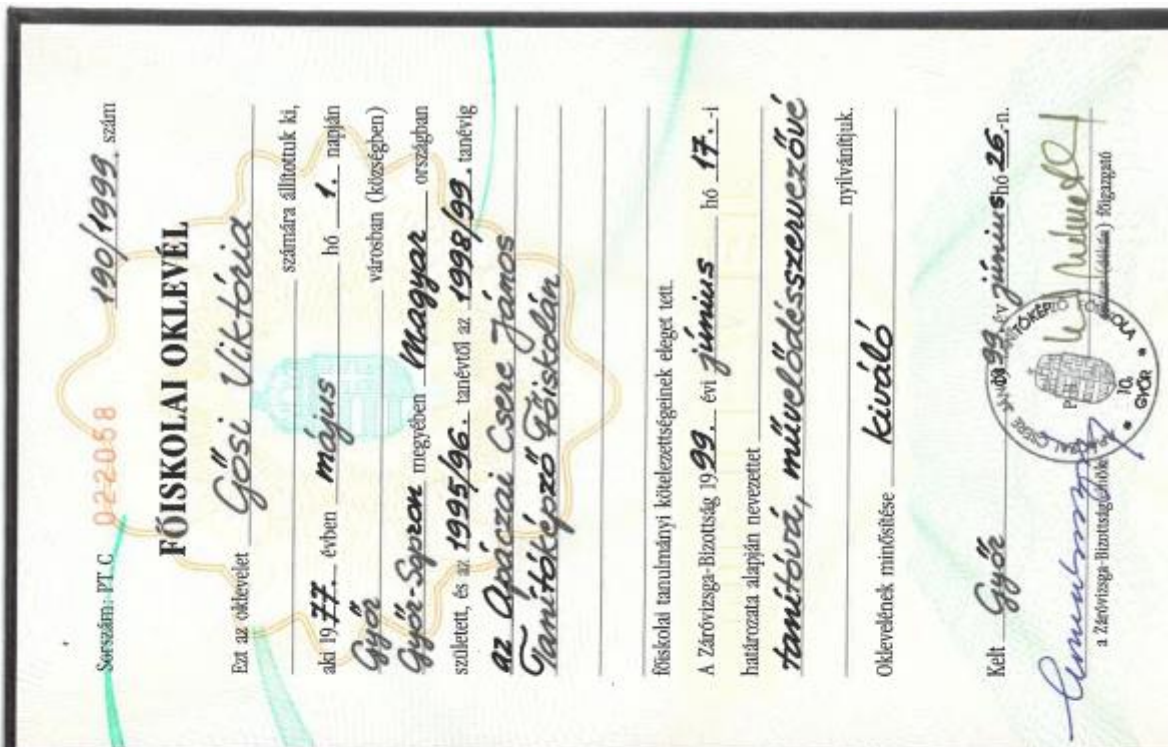 Sorszám: PT. C 022058
190/1999. szám
FŐISKOLAI OKLEVÉL
Ezt az oklevelet Gősi Viktória
számára állítottuk ki,
aki 1977. évben május hó 1. napján
Győr városban (községben)
Győr-Sopron megyében Magyar országban
született, és az 1995/96. tanévtől az 1998/99. tanévig
az Apáczai Csere János
Tanítóképző Főiskolán
főiskolai tanulmányi kötelezettségeinek eleget tett.
A Záróvizsga-Bizottság 1999. évi június hó 17.-i
határozata alapján nevezettet
tanítóvá, művelődésszervezővé
nyilvánítjuk.
Oklevelének minősítése kiváló
Kelt Győr 1999. év június hó 26.-n.
APÁCZAI CSERE JÁNOS TANÍTÓKÉPZŐ FŐISKOLA
P.H.
10.
GYŐR
a Záróvizsga-Bizottság elnöke
főigazgató